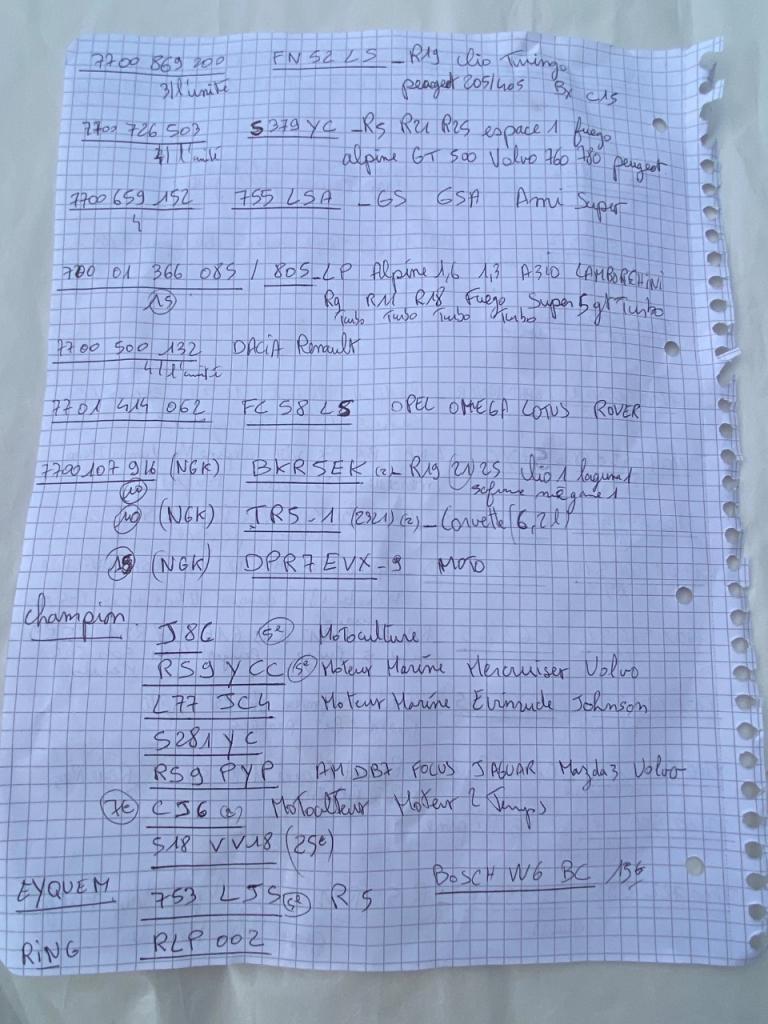 7700 869 200 FN 52 LS - R19 Clio Twingo
3/l'unité peugeot 205/405 Bx C15
7700 726 503 S 379 YC - R5 R21 R25 espace 1 fuego
4/l'unité alpine GT 500 Volvo 760 780 peugeot
7700 659 152 755 LSA - GS GSA Ami Super
4
700 01 366 085 / 805-LP Alpine 1,6 1,3 A310 LAMBORGHINI
15 R9 R11 R18 Fuego Super 5 gt Turbo
Turbo Turbo Turbo Turbo
7700 500 132 DACiA Renault
4/l'unité
7701 414 062 FC 58 LS OPEL OMEGA LOTUS ROVER
7700 107 916 (NGK) BKR5EK (2) - R19 21 25 Clio 1 laguna 1
10 safrane mégane 1
10 (NGK) TR5-1 (2921) (2) - Corvette (6,2l)
15 (NGK) DPR7EVX-9 MOTO
Champion
J8C 5€ Motoculture
RS9YCC 5€ Moteur Marine Mercruiser Volvo
L77 JC4 Moteur Marine Evinrude Johnson
S281 YC
RS9 PYP AM DB7 FOCUS JAGUAR Mazda3 Volvo
7€ CJ6 Motoculteur Moteur 2 Temps
S18 VV18 (25€)
BOSCH W6 BC 15€
EYQUEM 753 LJS 5€ R5
RiNG RLP 002